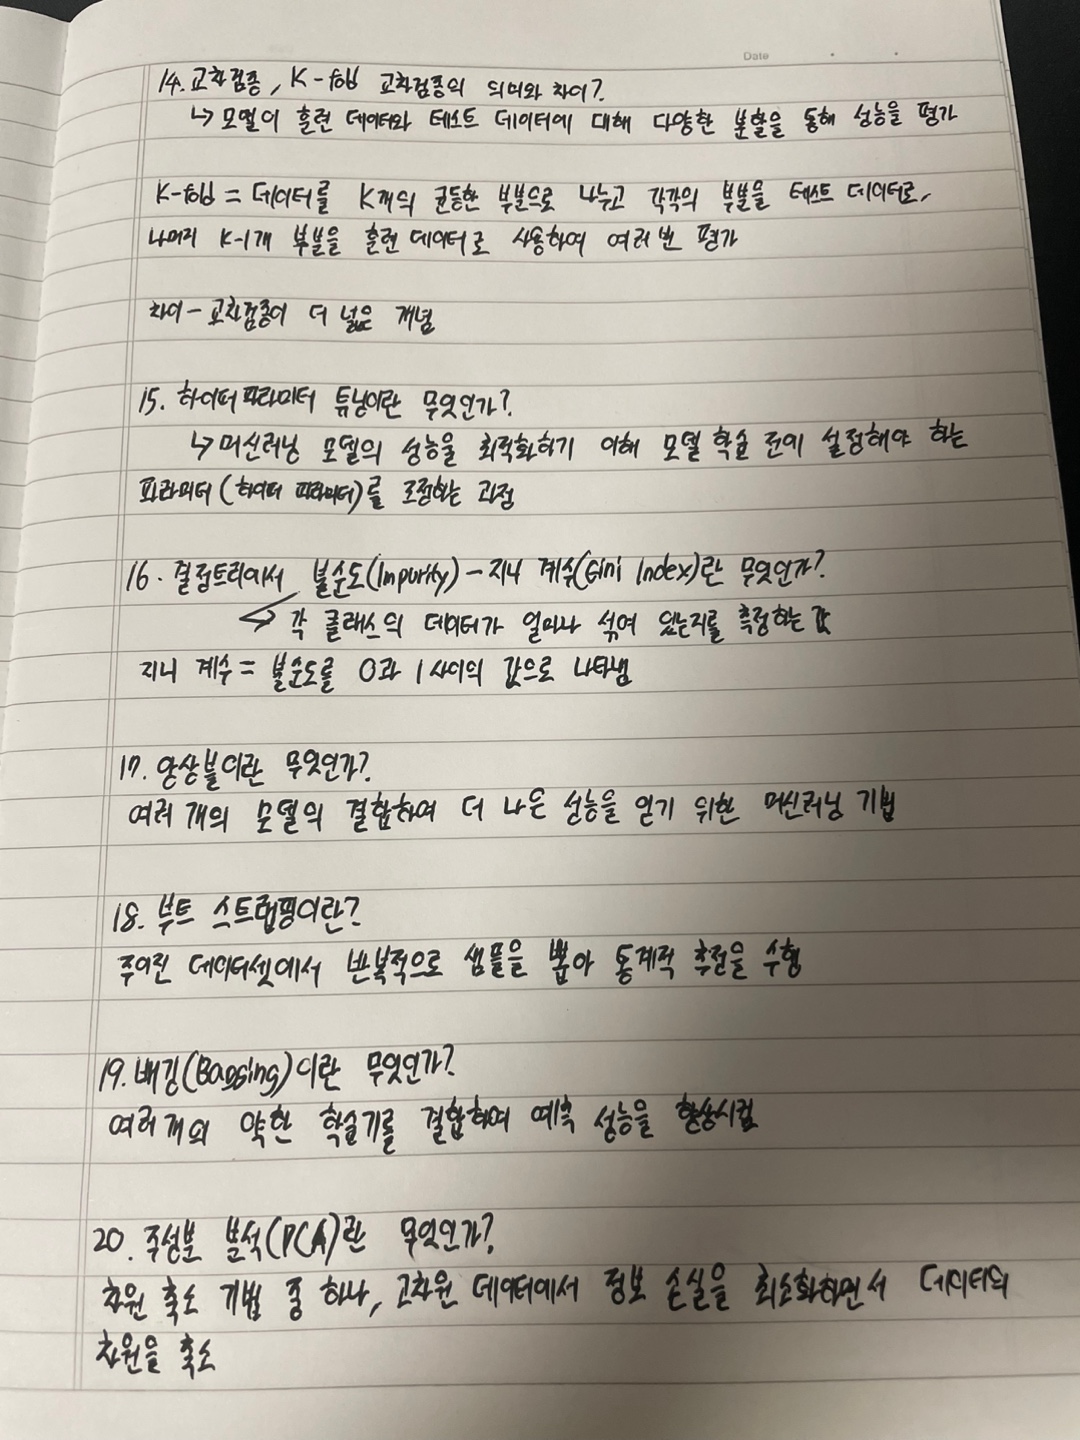 Date
14. 교차검증, K-fold 교차검증의 의미와 차이?
↳ 모델이 훈련 데이터와 테스트 데이터에 대해 다양한 분할을 통해 성능을 평가
K-fold = 데이터를 K개의 균등한 부분으로 나누고 각각의 부분을 테스트 데이터로,
나머지 K-1개 부분을 훈련 데이터로 사용하여 여러 번 평가
차이 - 교차검증이 더 넓은 개념
15. 하이퍼 파라미터 튜닝이란 무엇인가?
↳ 머신러닝 모델의 성능을 최적화하기 위해 모델 학습 전에 설정해야 하는
파라미터 (하이퍼 파라미터)를 조정하는 과정
16. 결정트리에서 불순도(Impurity) - 지니 계수(Gini Index)란 무엇인가?
↳ 각 클래스의 데이터가 얼마나 섞여 있는지를 측정하는 값
지니 계수 = 불순도를 0과 1 사이의 값으로 나타냄
17. 앙상블이란 무엇인가?
여러 개의 모델의 결합하여 더 나은 성능을 얻기 위한 머신러닝 기법
18. 부트 스트랩핑이란?
주어진 데이터셋에서 반복적으로 샘플을 뽑아 통계적 추정을 수행
19. 배깅(Bagging)이란 무엇인가?
여러 개의 약한 학습기를 결합하여 예측 성능을 향상시킴
20. 주성분 분석(PCA)란 무엇인가?
차원 축소 기법 중 하나, 고차원 데이터에서 정보 손실을 최소화하면서 데이터의
차원을 축소